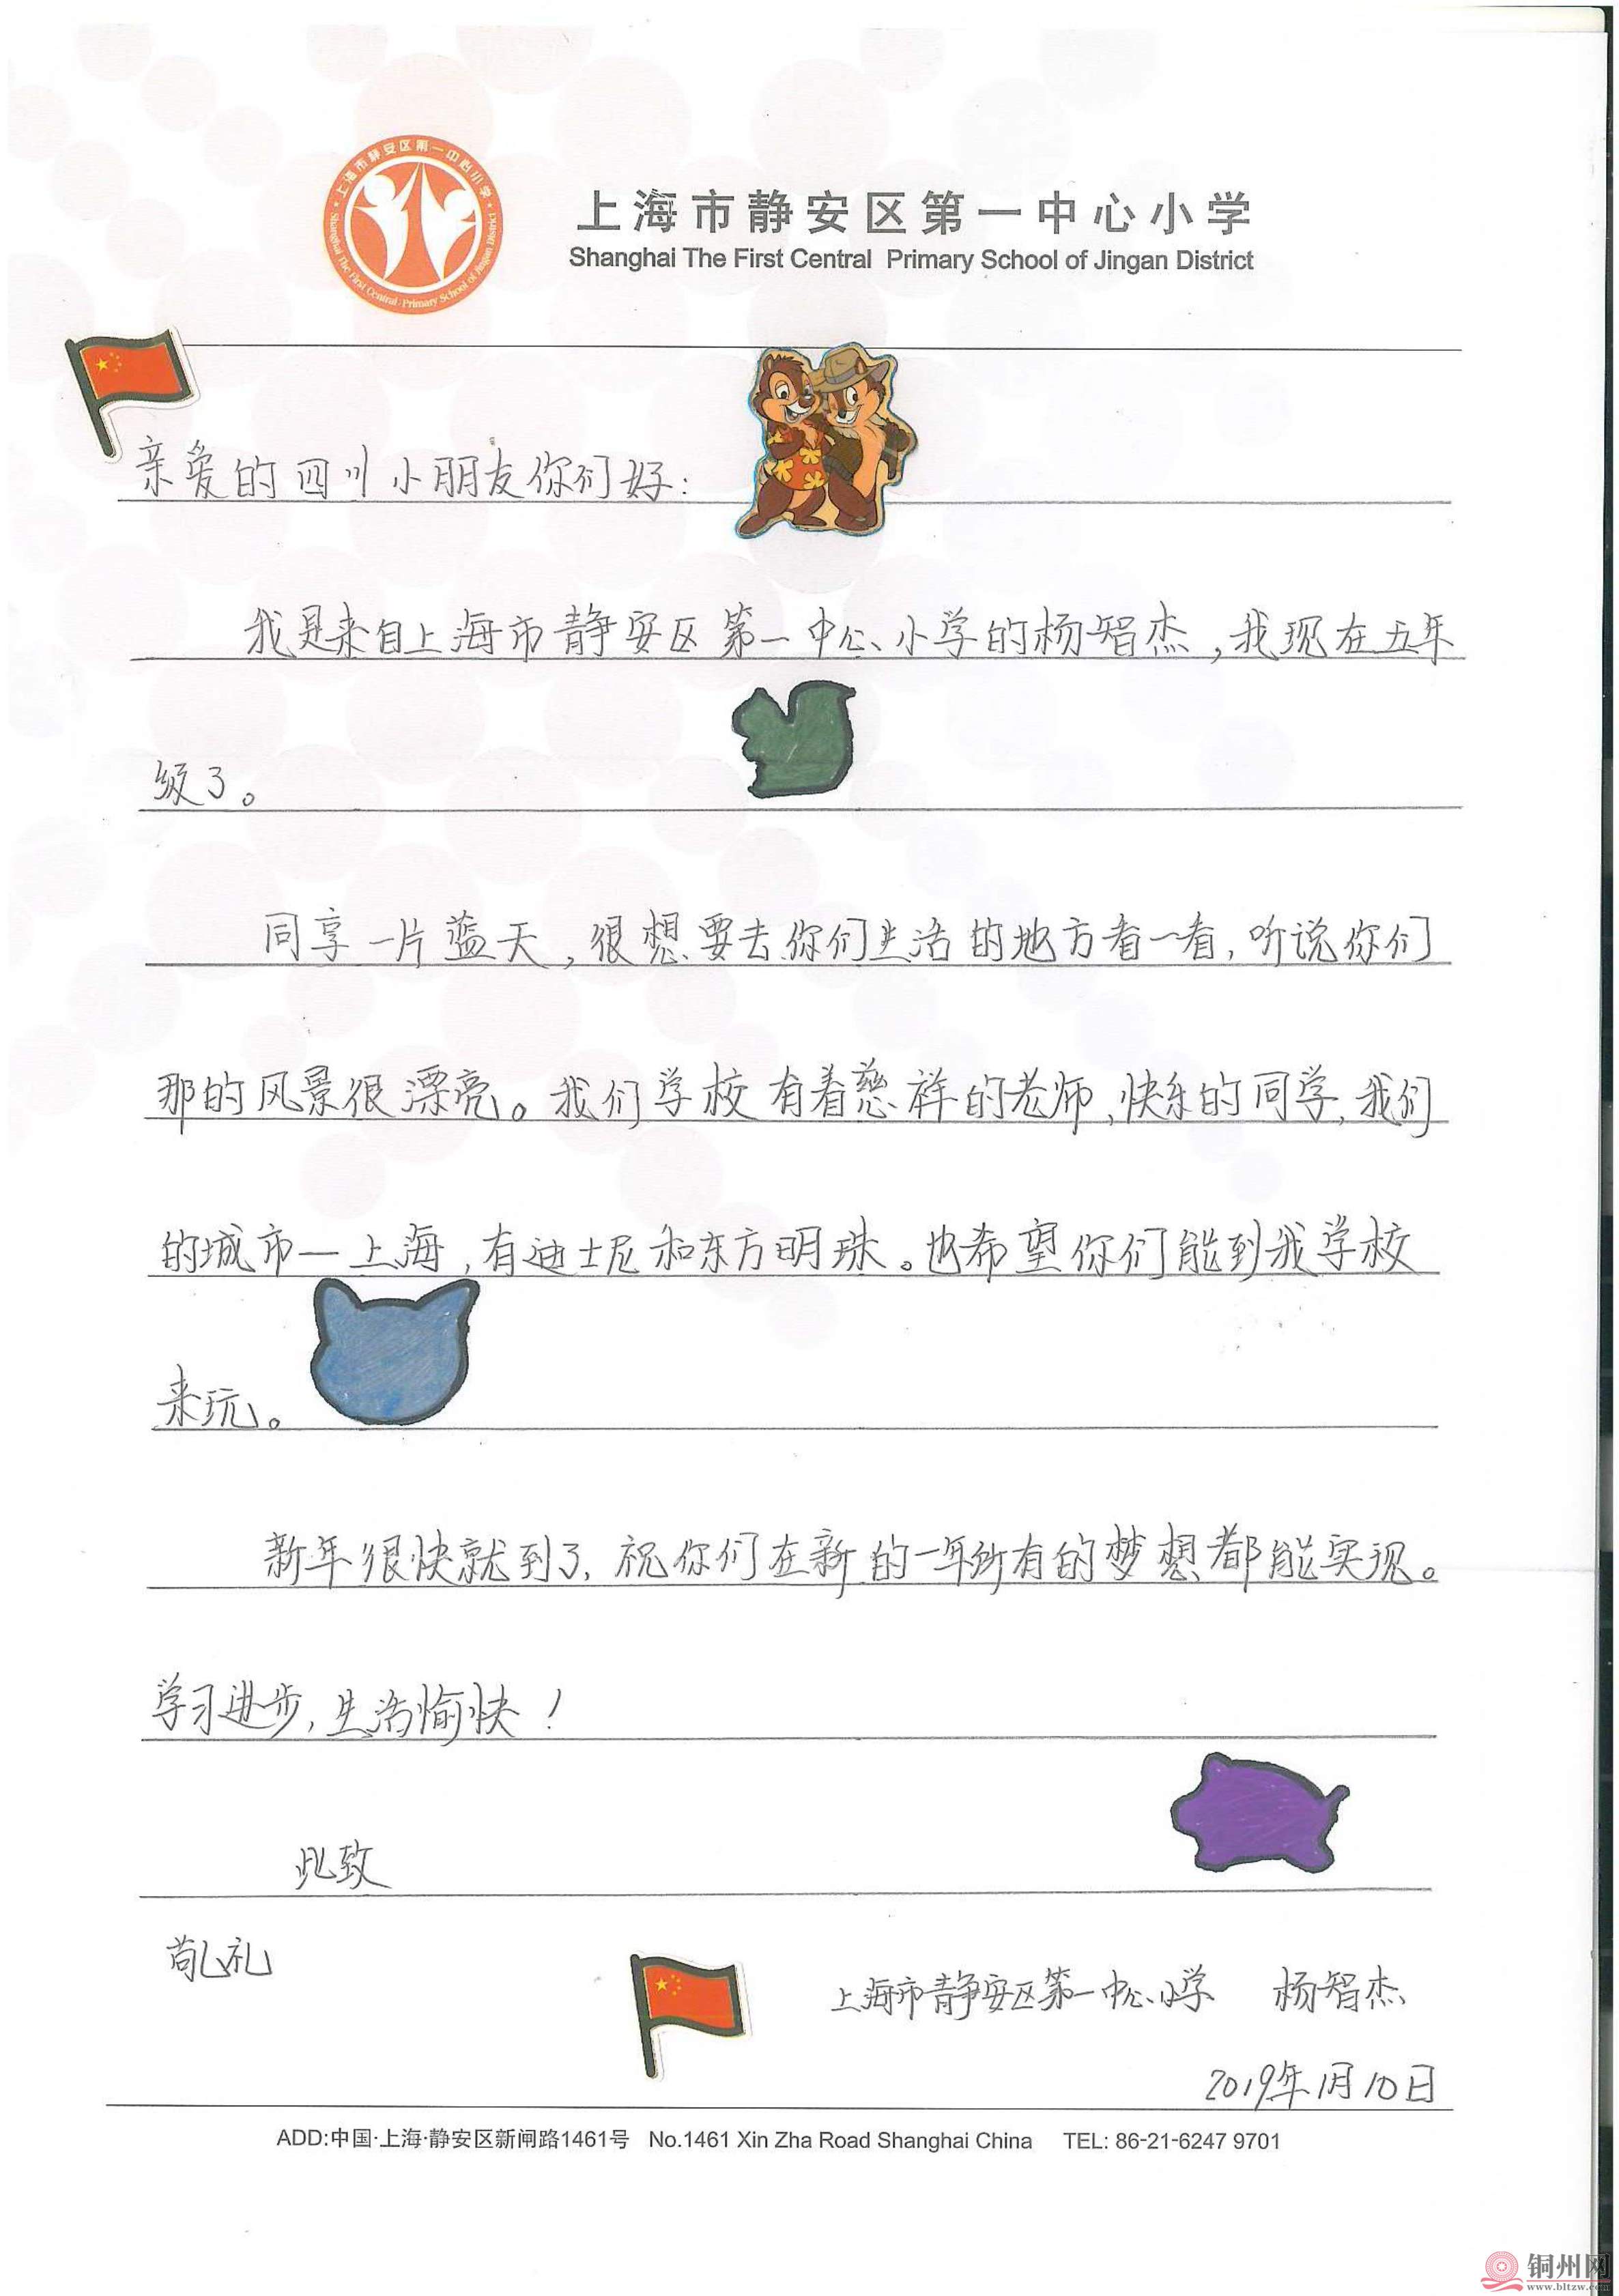 上海市静安区第一中心小学
Shanghai The First Central Primary School of Jingan District
上海市静安区第一中心小学
Shanghai The First Central Primary School of Jingan District
亲爱的四川小朋友你们好：
我是来自上海市静安区第一中心小学的杨智杰，我现在五年
级了。
同享一片蓝天，很想要去你们生活的地方看一看，听说你们
那的风景很漂亮。我们学校有着慈祥的老师，快乐的同学，我们
的城市—上海，有迪士尼和东方明珠。也希望你们能到我学校
来玩。
新年很快就到了，祝你们在新的一年所有的梦想都能实现。
学习进步，生活愉快！
此致
敬礼
上海市静安区第一中心小学 杨智杰
2019年1月10日
ADD:中国·上海·静安区新闸路1461号 No.1461 Xin Zha Road Shanghai China TEL: 86-21-6247 9701
铜州网
www.bltzw.com